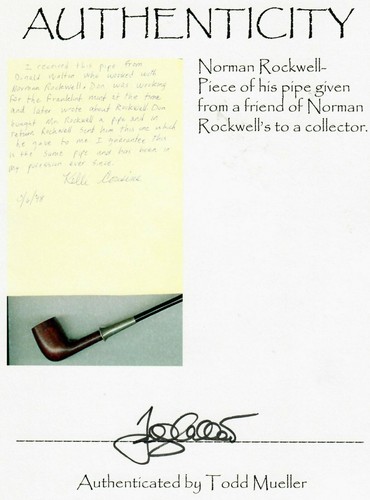 AUTHENTICITY
I received this pipe from
Donald Walton who worked with
Norman Rockwell. Don was working
for the Franklin mint at the time
and later wrote about Rockwell Don
bought Mr. Rockwell a pipe and in
return Rockwell sent him this one which
he gave to me. I guarantee this
is the same pipe and has been in
my possession ever since.
Norman Rockwell-
Piece of his pipe given
from a friend of Norman
Rockwell's to a collector.
Authenticated by Todd Mueller